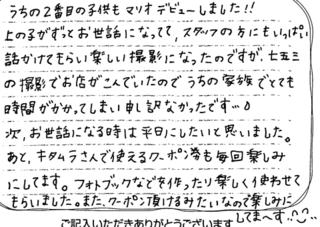 うちの2番目の子供もマリオデビューしました!!
上の子がずっとお世話になってて、スタッフの方にもいっぱい
話かけてもらい楽しい撮影になったのですが、七五三
の撮影でお店がこんでいたのでうちの家族でとても
時間がかかってしまい申し訳なかったです…
次、お世話になる時は平日にしたいと思いました。
あと、キタムラさんで使えるクーポン券も毎回楽しみ
にしてます。フォトブックなどを作ったり楽しく使わせて
もらいました。また、クーポン頂けるみたいなので楽しみに
してまーす
ご記入いただきありがとうございます